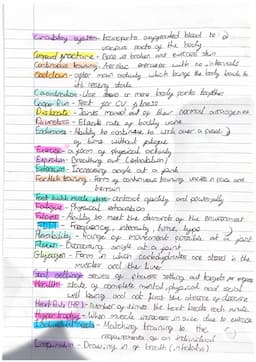 Circulatory system - transports oxygenated blood to
various parts of the body
Compound fracture - Bone is broken and pierces skin
Continuous training - Aerobic exercise with no intervals
Cool down - after main activity which brings the body back to
its resting state
Coordination - Use two or more body parts together
Cooper Run - Test for CV fitness
Dislocate - Joints moved out of their normal arrangement
Duration - of time
Endurance - Ability to continue to work over a period
of time without fatigue
Exercise - a form of physical activity
Expiration - Breathing out (exhalation)
Extension - Increasing angle at a joint
Fartlek training - Form of continuous training varies in pace and
terrain
Fast twitch muscle fibres - contract quickly and powerfully
Fatigue - Physical exhaustion
Fitness - Ability to meet the demands of the environment
FITT - Frequency, intensity, time, type
Flexibility - Range of movement possible at a joint
Flexion - Decreasing angle at a joint
Glycogen - Form in which carbohydrates are stored in the
muscles and the liver
Goal setting - process of setting out targets
Health - state of complete mental, physical and social
well being and not just the absence of disease
Heart Rate (HR) - Number of times the heart beats each minute
Hypertrophy - When muscle increases in size due to exercise
Individual needs - Matching training to the
requirements of an individual
Inspiration - Drawing in of breath (inhalation)